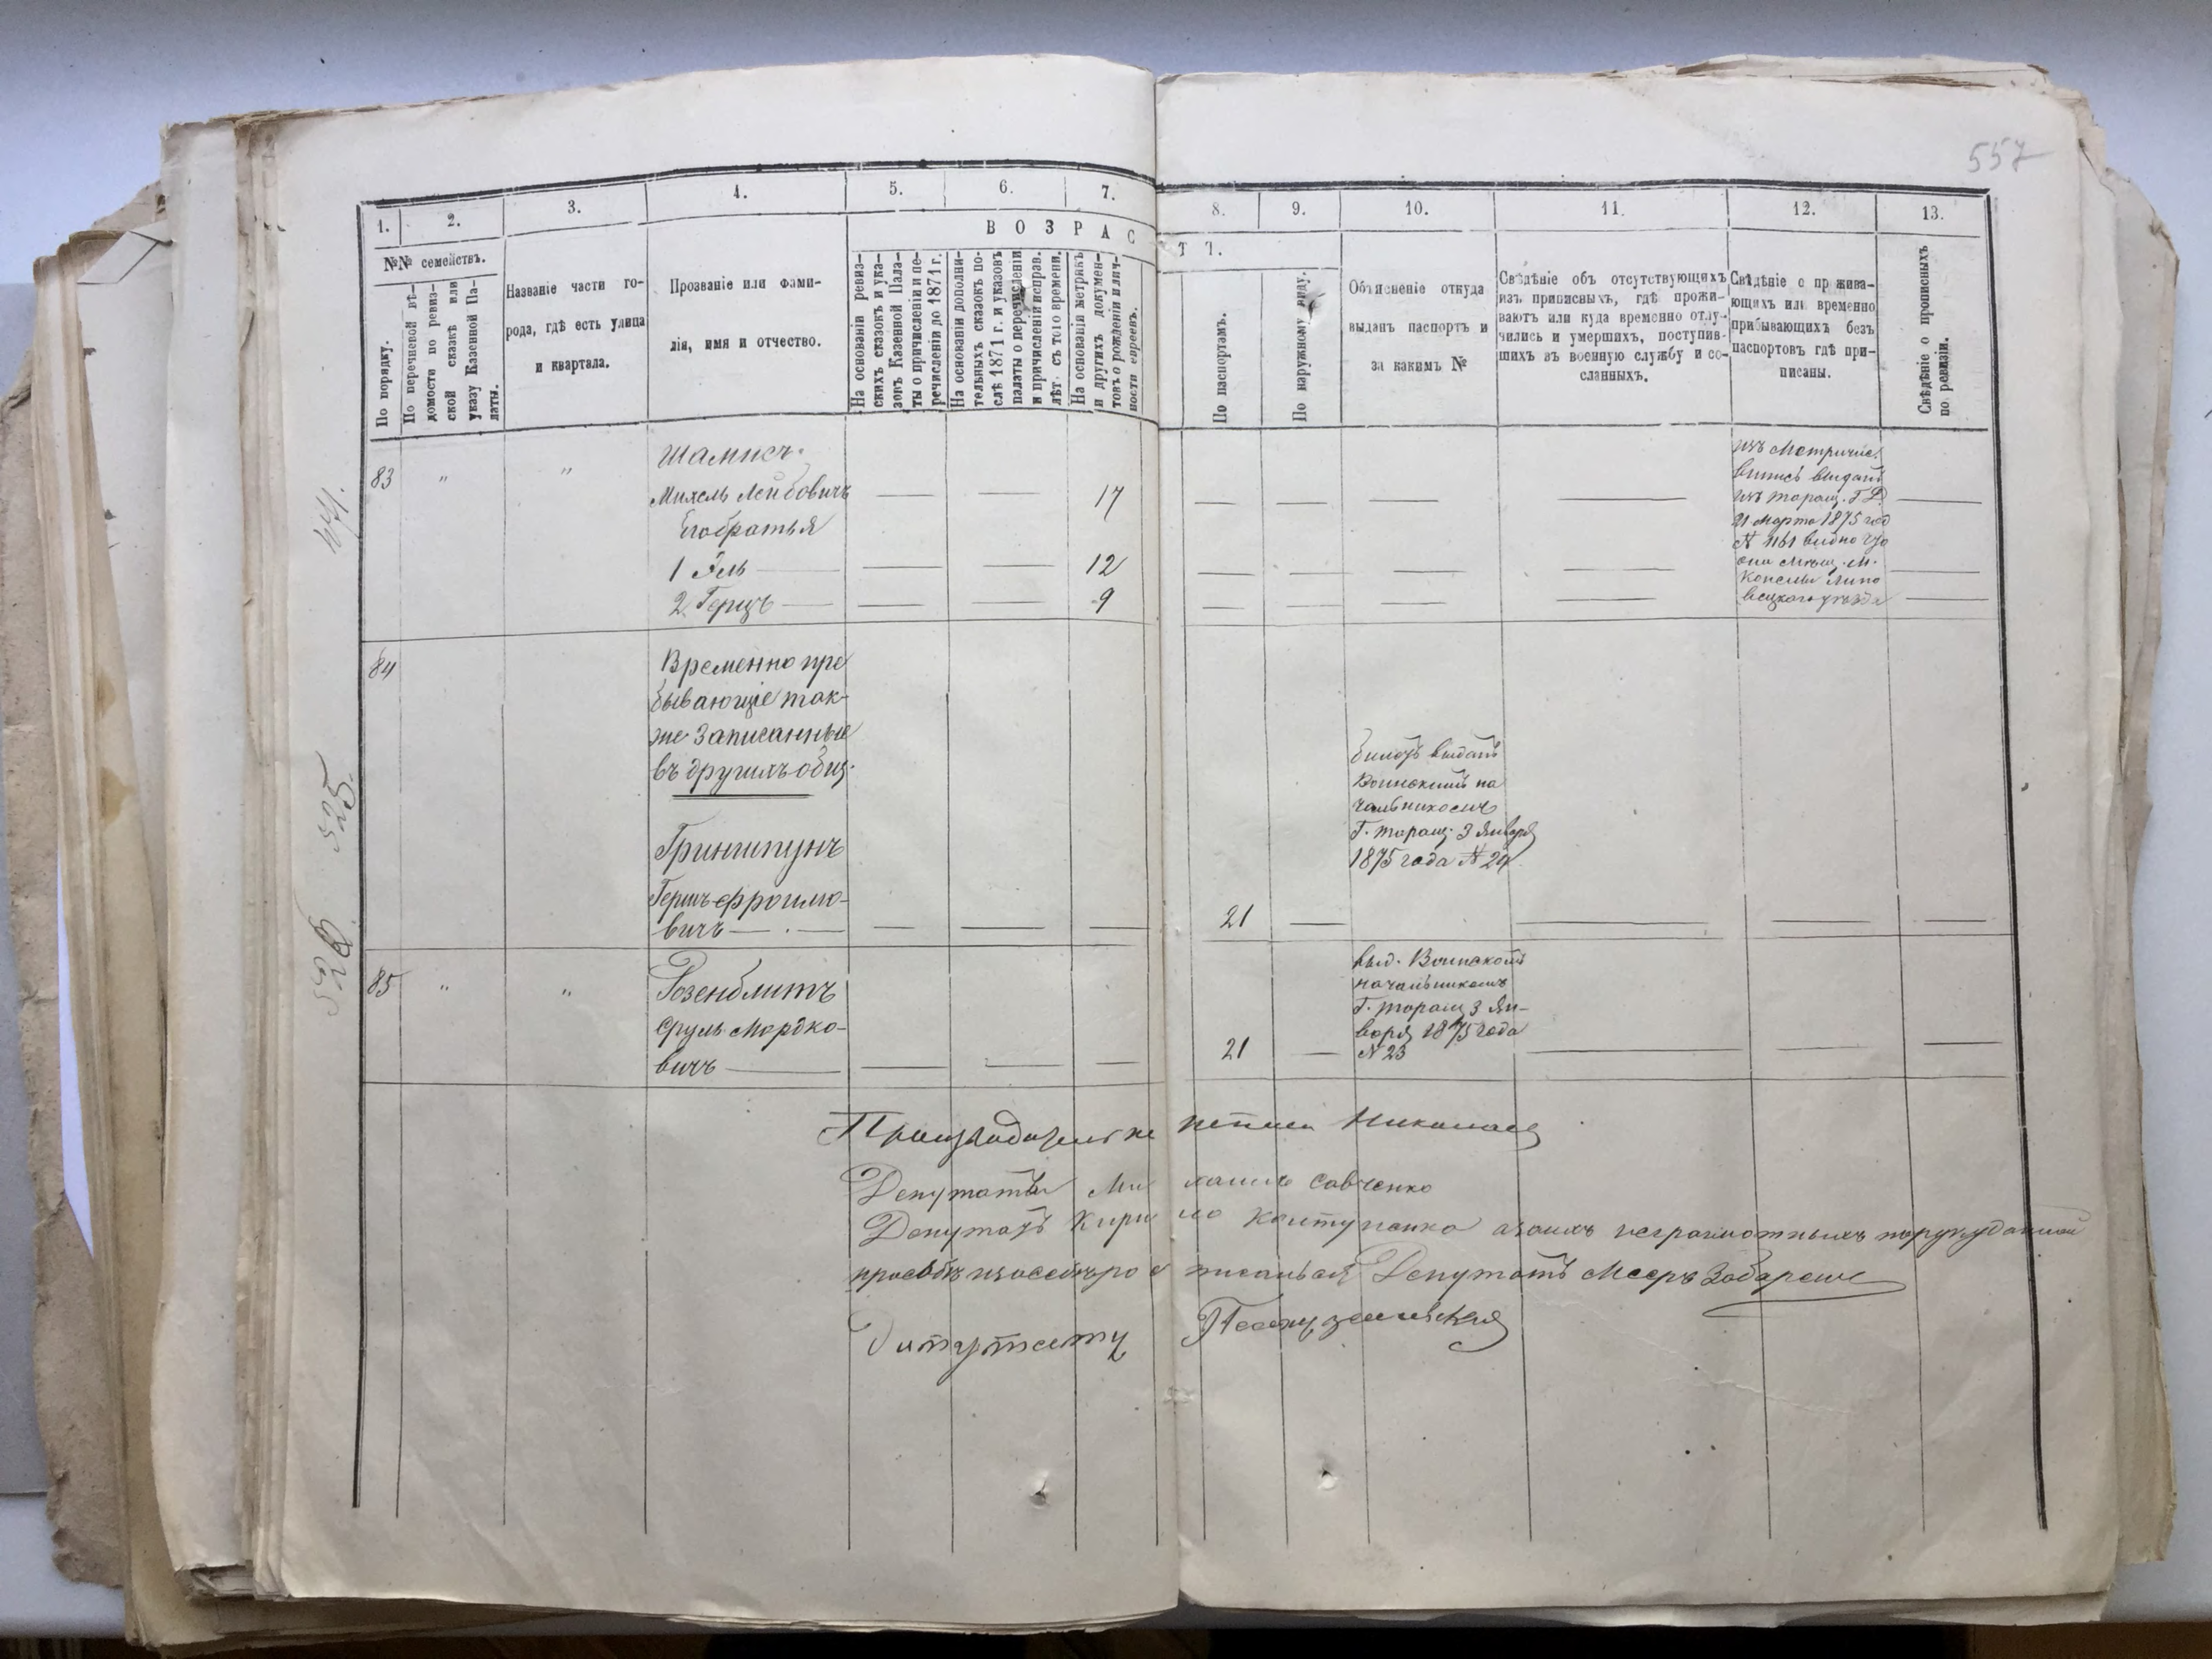 557
1. 2. 3. 4. 5. 6. 7. 8. 9. 10. 11. 12. 13.
№№ семействъ.
По порядку.
По перечневой вѣ-
домости по ревиз-
ской сказкѣ или
указу Казенной Па-
латы.
Названіе части го-
рода, гдѣ есть улица
и квартала.
Прозваніе или фами-
лія, имя и отчество.
ВОЗРАСТЪ.
На основаніи ревиз-
скихъ сказокъ и ука-
зовъ Казенной Пала-
ты о причисленіи и пе-
речисленія до 1871 г.
На основаніи дополни-
тельныхъ сказокъ по-
слѣ 1871 г. и указовъ
палаты о перечисленіи
и причисленіи исправ.
лѣт. съ того времени.
На основаніи метрикъ
и другихъ докумен-
товъ о рожденіи и лич-
ности евреевъ.
По паспортамъ.
По наружному виду.
Объясненіе откуда
выданъ паспортъ и
за какимъ №
Свѣдѣніе объ отсутствующихъ
изъ приписныхъ, гдѣ прожи-
ваютъ или куда временно отлу-
чились и умершихъ, поступив-
шихъ въ военную службу и со-
сланныхъ.
Свѣдѣніе о прожива-
ющихъ или временно
прибывающихъ безъ
паспортовъ гдѣ при-
писаны.
Свѣдѣніе о прописныхъ
по ревизіи.
83 " "
Шамисъ
Михель Лейбовичъ — — 17 — — — — —
Его братья
1 Эль — — — 12 — — — — —
2 Герцъ — — — 9 — — — — —
изъ Метричес.
выписъ выдан
изъ таращ. Г. Д.
21 Марта 1875 год
№ 1161 видно что
они мѣщ. м.
Конелы Липо
вецкого уѣзда
84
Временно пре
бывающіе так-
же записанные
въ другихъ общ.
Гриншпунъ
Гершъ Фроимо-
вичъ — — — — 21 — — — —
билетъ выданъ
Воинскимъ на
чальникомъ
Г. таращ. 3 Января
1875 года № 24
525.
526
85 " "
Розенблитъ
Сруль Мордко-
вичъ — — — — 21 — — — —
выд. Воинским
начальникомъ
Г. таращ 3 Ян-
варя 1875 года
№ 23
Депутатъ Михаилъ Савченко
Депутатъ Кирило неграмотныхъ
Депутатъ Мееръ